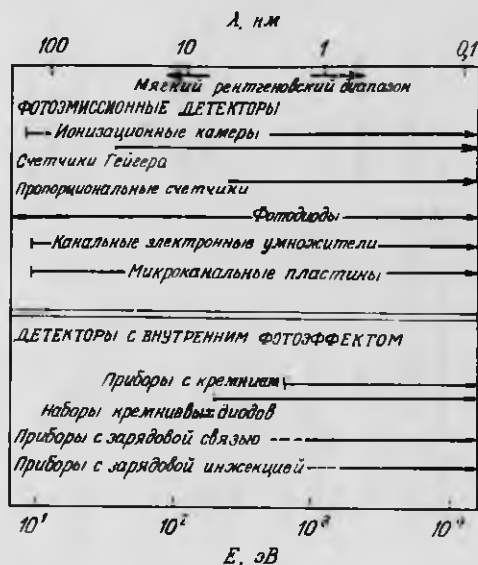 λ, нм
100 10 1 0,1
Мягкий рентгеновский диапазон
ФОТОЭМИССИОННЫЕ ДЕТЕКТОРЫ
Ионизационные камеры
Счетчики Гейгера
Пропорциональные счетчики
Фотодиоды
Канальные электронные умножители
Микроканальные пластины
ДЕТЕКТОРЫ С ВНУТРЕННИМ ФОТОЭФФЕКТОМ
Приборы с кремнием
Наборы кремниевых диодов
Приборы с зарядовой связью
Приборы с зарядовой инжекцией
10¹ 10² 10³ 10⁴
E, эВ